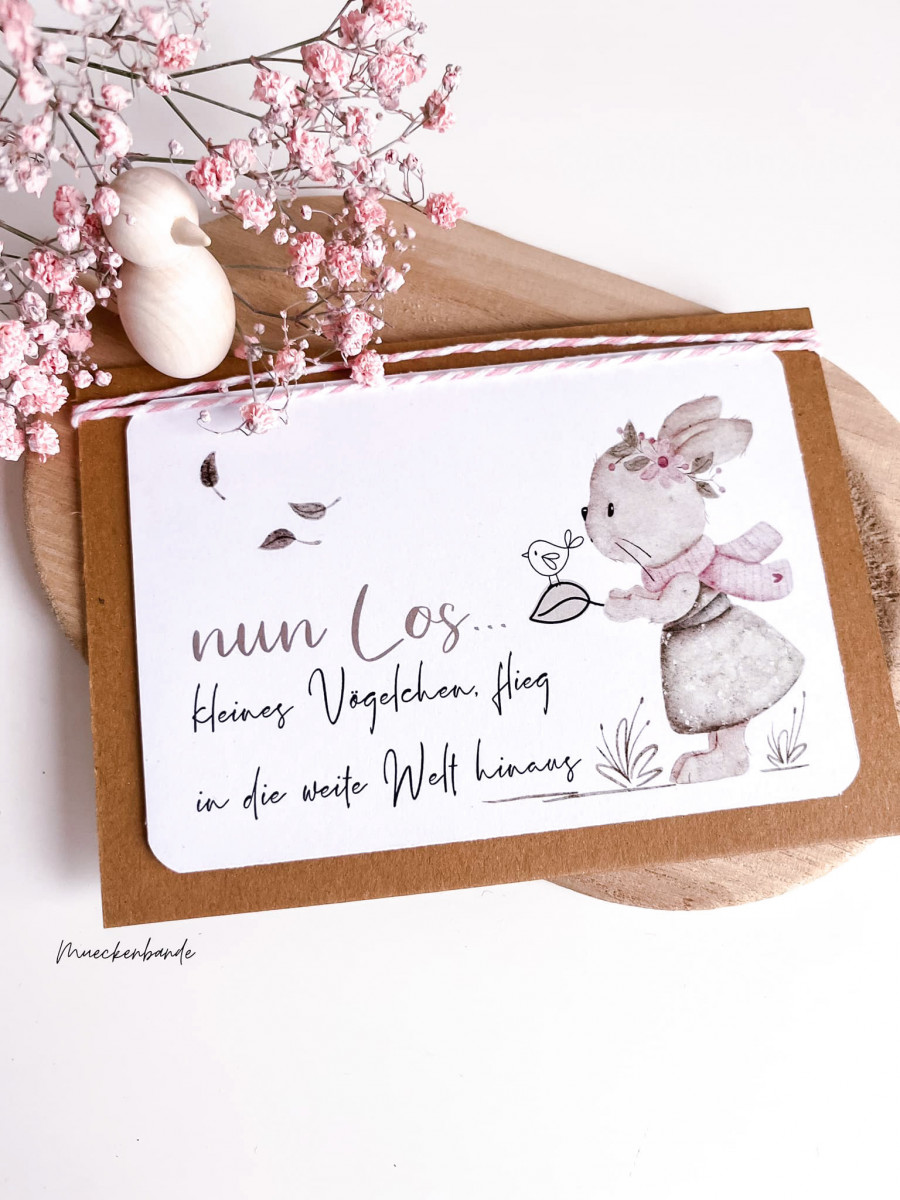 nun Los...
kleines Vögelchen, flieg
in die weite Welt hinaus
Mueckenbande